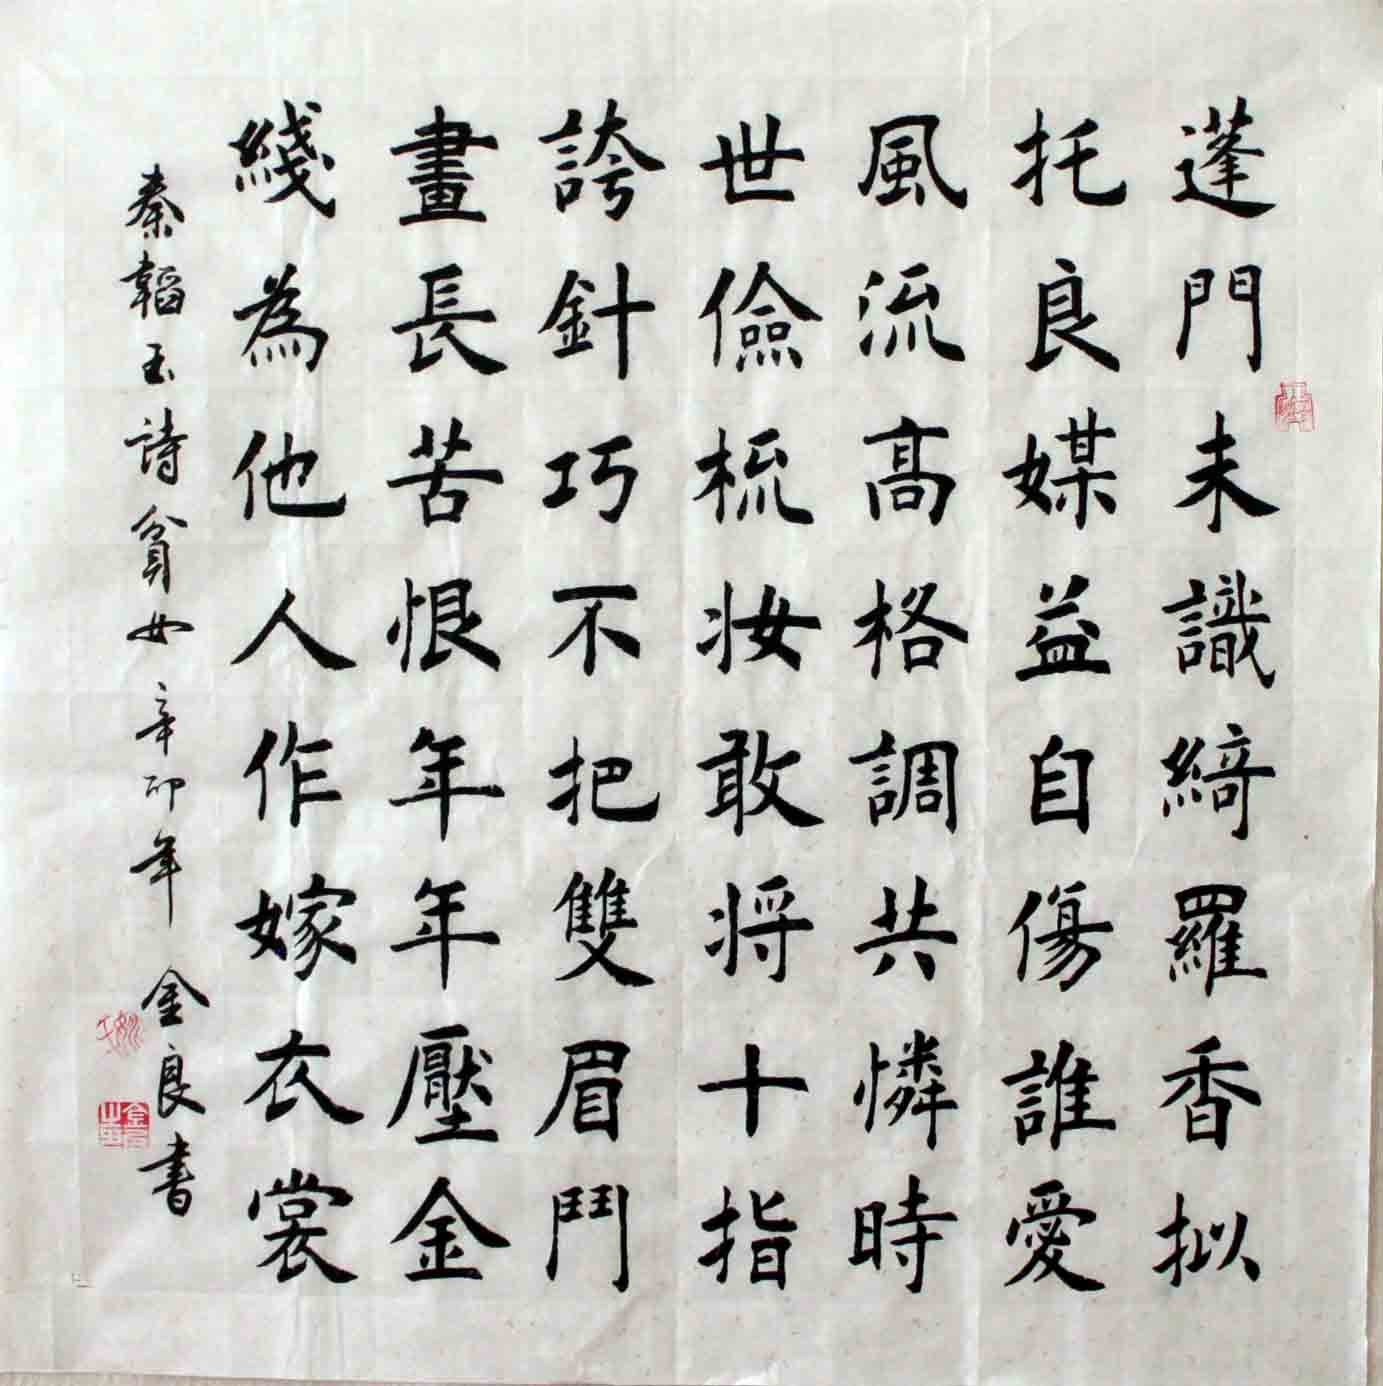 蓬門未識綺羅香拟
托良媒益自傷誰愛
風流高格調共憐時
世儉梳妝敢将十指
誇針巧不把雙眉鬥
畫長苦恨年年壓金
綫為他人作嫁衣裳
秦韜玉詩貧女 辛卯年 金良書